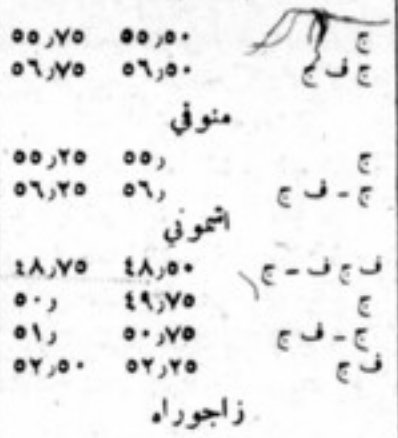 ج ٥٥٫٥٠ ٥٥٫٧٥
ج ف ج ٥٦٫٥٠ ٥٦٫٧٥
منوفي
ج ٥٥٫ ٥٥٫٢٥
ج - ف ج ٥٦٫ ٥٦٫٢٥
اشموني
ف ج ف - ج ٤٨٫٥٠ ٤٨٫٧٥
ج ٤٩٫٧٥ ٥٠٫
ج - ف ج ٥٠٫٧٥ ٥١٫
ف ج ٥٢٫٢٥ ٥٢٫٥٠
زاجوراه